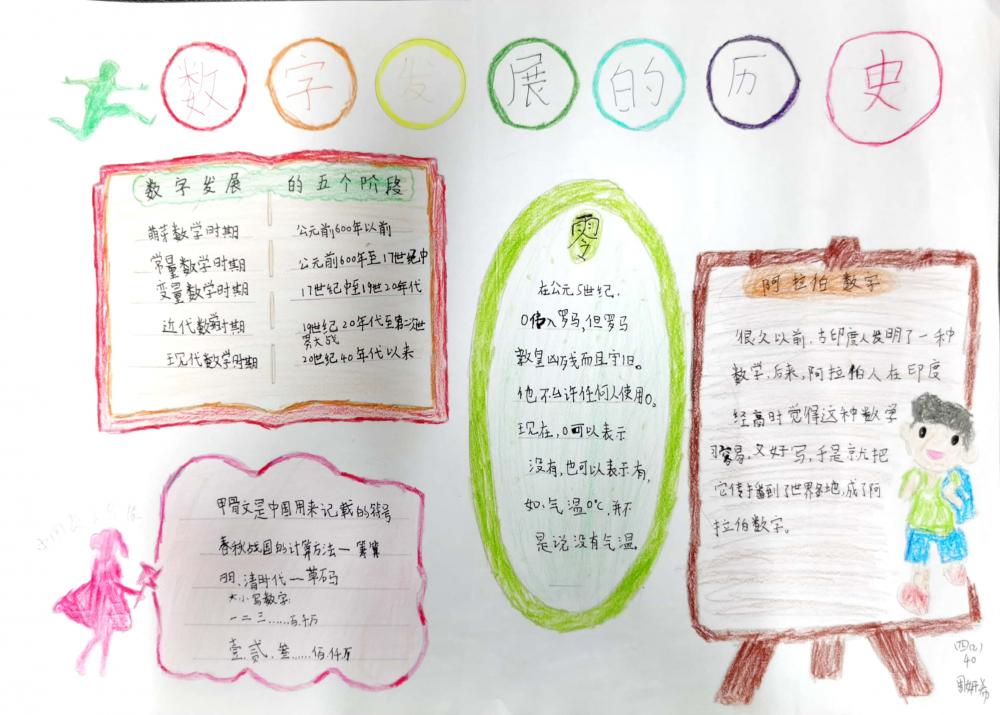 数字发展的历史
数字发展的五个阶段
萌芽数学时期 公元前600年以前
常量数学时期 公元前600年至17世纪中
变量数学时期 17世纪中至19世20年代
近代数学时期 19世纪20年代至第二次世
界大战
现代数学时期 20世纪40年代以来
零
在公元5世纪.
0传入罗马,但罗马
教皇凶残而且守旧。
他不允许任何人使用0。
现在,0可以表示
没有,也可以表示有,
如:气温0℃,并不
是说没有气温。
阿拉伯数字
很久以前,古印度人发明了一种
数学,后来,阿拉伯人在印度
经商时觉得这种数学
容易,又好写,于是就把
它传播到了世界各地,成了阿
拉伯数字。
甲骨文是中国用来记载的符号
春秋战国的计算方法一算筹
明、清时代一草码
大小写数字:
一二三......百千万
壹.贰.叁......佰.仟万
四(2)
40